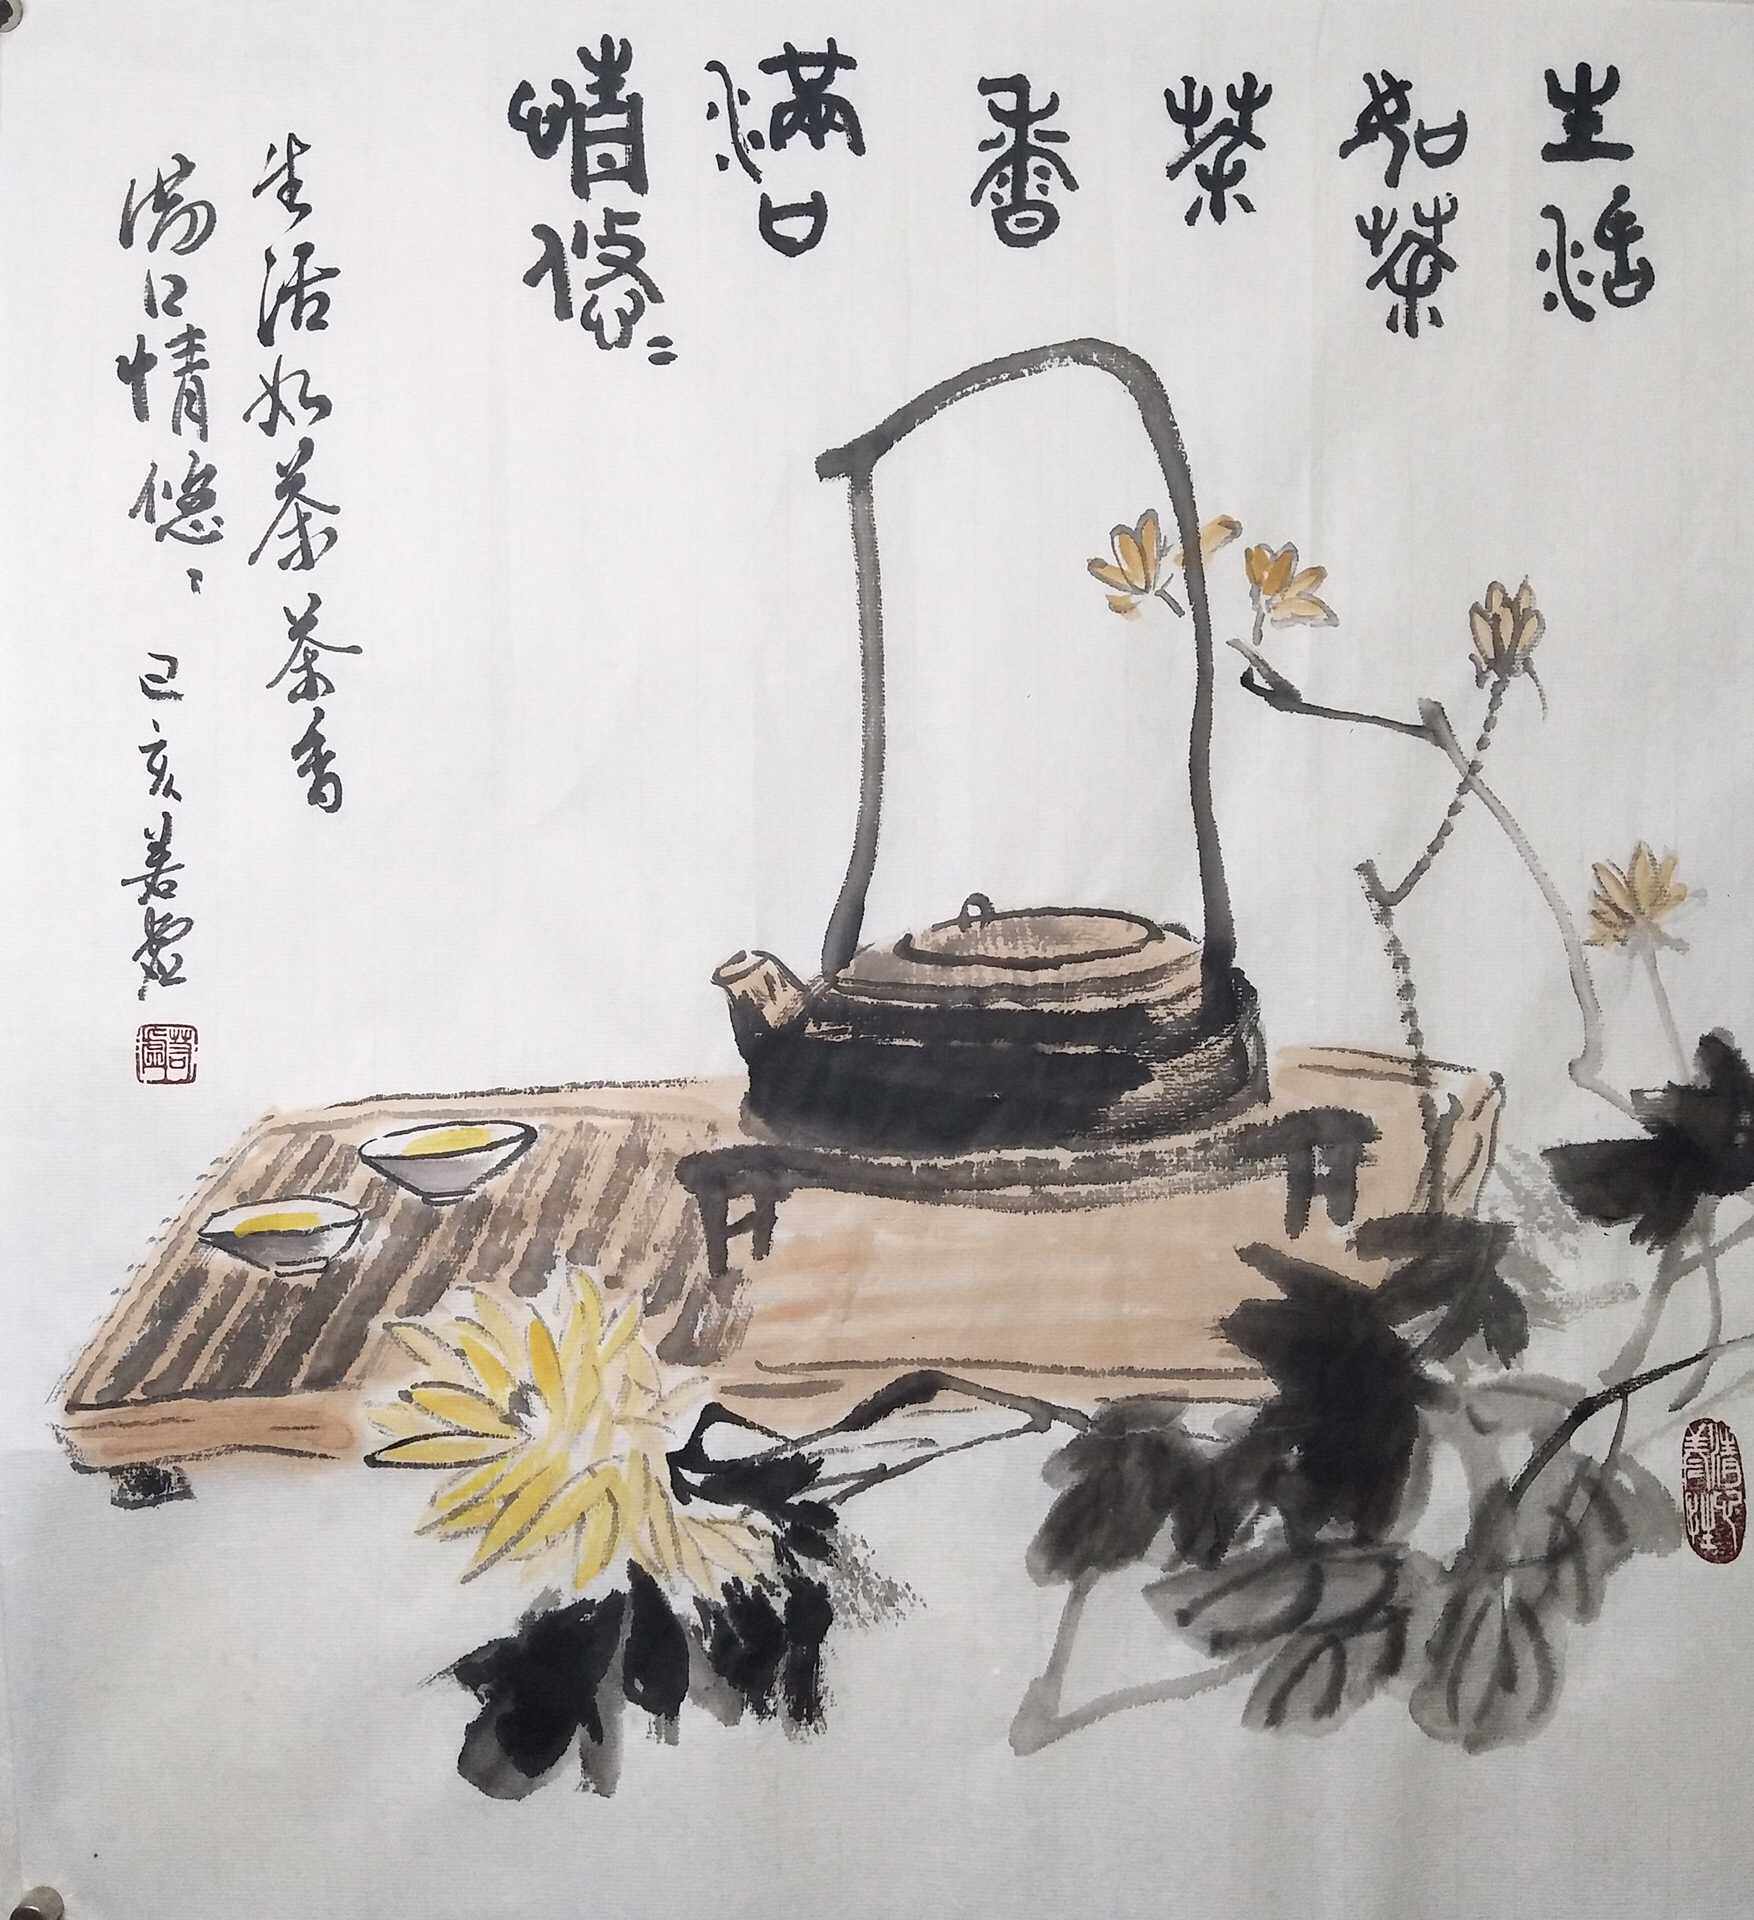 生活
如茶
茶
香
满口
情悠〻
生活如茶茶香
满口情悠〻 己亥若虚
若虚